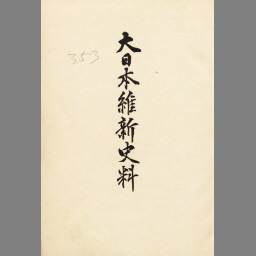 353
大日本維新史料